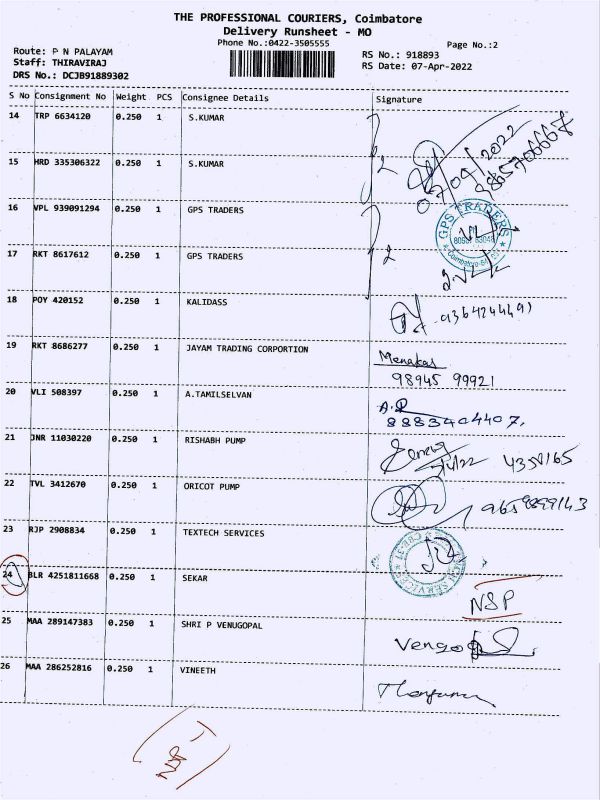 THE PROFESSIONAL COURIERS, Coimbatore
Delivery Runsheet - MO
Phone No.:0422-3505555
Page No.:2
Route: P N PALAYAM
Staff: THIRAVIRAJ
DRS No.: DCJB91889302
RS No.: 918893
RS Date: 07-Apr-2022
S No Consignment No Weight PCS Consignee Details Signature
14 TRP 6634120 0.250 1 S.KUMAR
07/04/2022
15 HRD 335306322 0.250 1 S.KUMAR
2
16 VPL 939091294 0.250 1 GPS TRADERS
GPS TRADERS
17 RKT 8617612 0.250 1 GPS TRADERS
2
18 POY 420152 0.250 1 KALIDASS
19 RKT 8686277 0.250 1 JAYAM TRADING CORPORTION
Menakas
98945 99921
20 VLI 508397 0.250 1 A.TAMILSELVAN
8883404407.
21 JNR 11030220 0.250 1 RISHABH PUMP
22 TVL 3412670 0.250 1 ORICOT PUMP
9659899143
23 RJP 2908834 0.250 1 TEXTECH SERVICES
24 BLR 4251811668 0.250 1 SEKAR
NSP
25 MAA 289147383 0.250 1 SHRI P VENUGOPAL
26 MAA 286252816 0.250 1 VINEETH